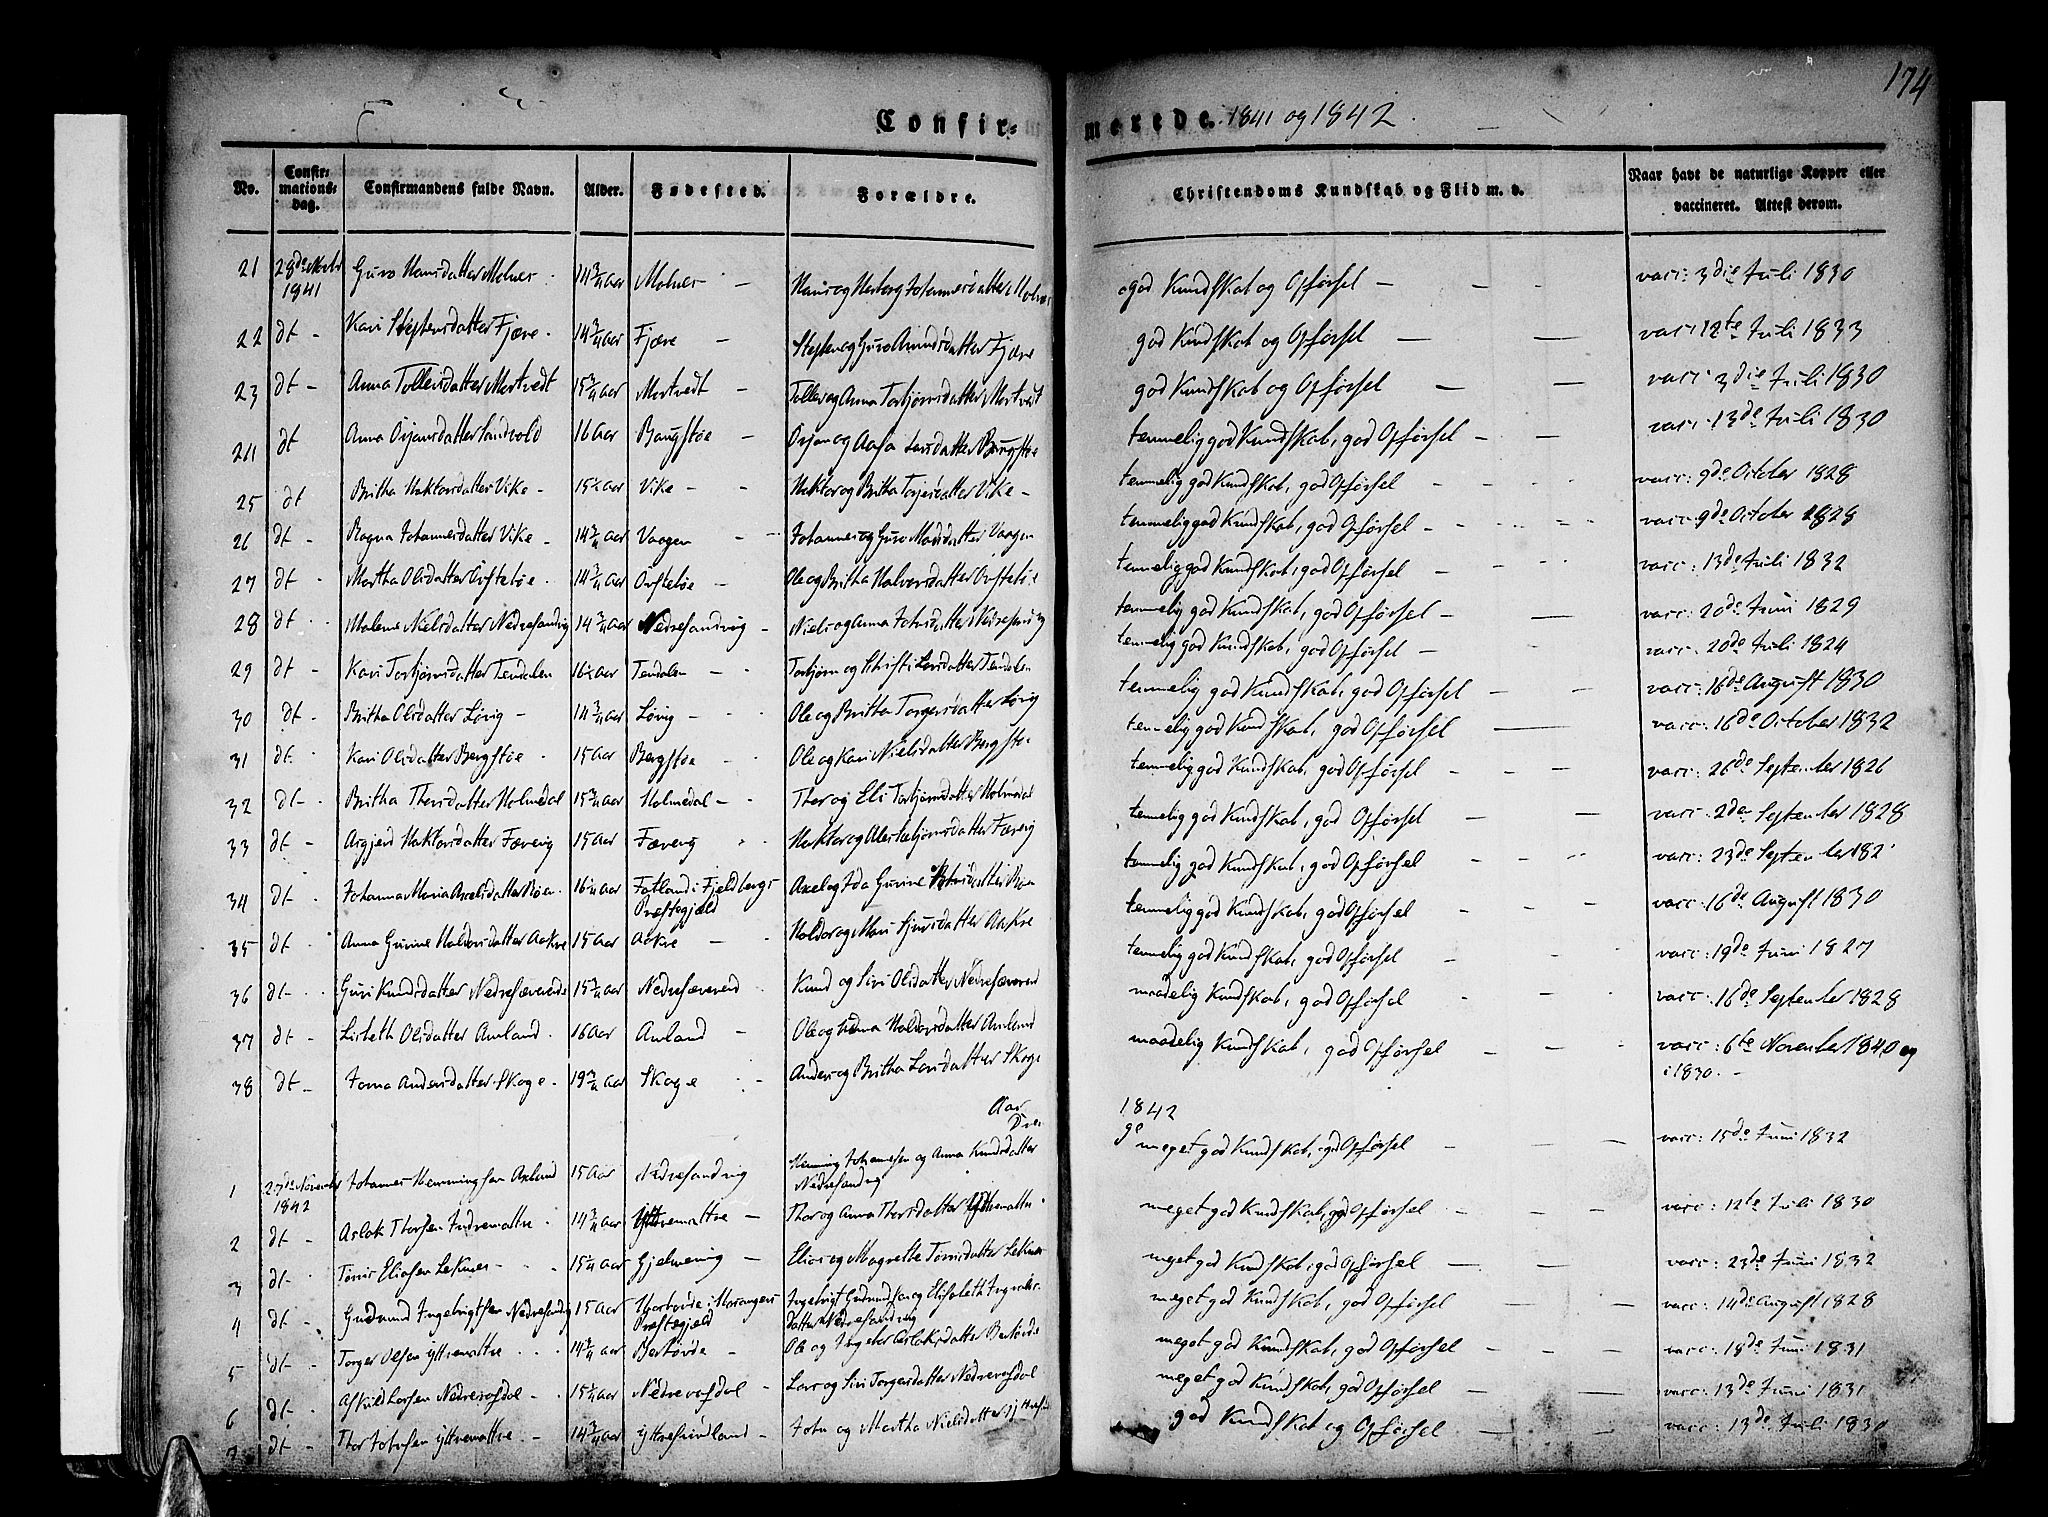 174
Confir= merede. 1841 og 1842
No. Confir-mations-dag. Confirmandens fulde Navn. Alder. Fødested. Forældre. Christendoms Kundskab og Flid m. v. Naar havt de naturlige Kopper eller vaccineret. Attest derom.
21 28de Novbr 1841 Guro Hansdatter Molnes 14 3/4 Aar Molnes – Hans og Herborg Johannesdatter Molnes god Kundskab og Opførsel – vacc: 3die Juli 1830
22 dt – Kari Stephensdatter Fjære. 14 3/4 Aar Fjære – Stephen og Guro Amundsdatter Fjære god Kundskab og Opførsel – vacc: 12te Juli 1833
23 dt – Anna Tollevsdatter Mortvedt 15 3/4 Aar Mortvedt – Tollev og Anna Torbjørnsdatter Mortvedt god Kundskab og Opførsel – vacc: 3die Juli 1830
24 dt Anna Ørjansdatter Sandvold 16 Aar Baugstøe – Ørjan og Aasa Larsdatter Baugstøe temmelig god Kundskab, god Opførsel – vacc: 13de Juli 1830
25 dt Britha Haktorsdatter Vike – 15 1/4 Aar Vike – Haktor og Britha Torjersdatter Vike – temmelig god Kundskab, god Opførsel – vacc: 9de October 1828
26 dt – Ragna Johannesdatter Vike – 14 3/4 Aar Vaagen – Johannes og Guro Madsdatter Vaagen temmelig god Kundskab, god Opførsel – vacc: 9de October 1828
27 dt Martha Olsdatter Øvstebøe. 14 3/4 Aar Øvstebøe – Ole og Britha Halvorsdatter Øvstebøe temmelig god Kundskab, god Opførsel – vacc: 13de Juli 1832
28 dt Malene Nielsdatter Nedresandvig 14 3/4 Aar Nedresandvig – Niels og Anna Johnsdatter Nedresandvig temmelig god Kundskab, god Opførsel – vacc: 20de Juni 1829
29 dt – Kari Torbjørnsdatter Tendalen 16 1/4 Aar Tendalen – Torbjørn og Christi Larsdatter Tendalen temmelig god Kundskab, god Opførsel – vacc: 20de Juli 1824
30 dt – Britha Olsdatter Løvig – 14 3/4 Aar Løvig – Ole og Britha Torgersdatter Løvig temmelig god Kundskab, god Opførsel – vacc: 16de August 1830
31 dt Kari Olsdatter Bergstøe 15 Aar Bergstøe – Ole og Kari Nielsdatter Bergstøe temmelig god Kundskab, god Opførsel – vacc: 16de October 1832
32 dt – Britha Thorsdatter Holmedal 15 3/4 Aar Holmedal – Thor og Eli Torbjørnsdatter Holmedal temmelig god Kundskab, god Opførsel – vacc: 26de September 1826
33 dt – Asgjerd Haktorsdatter Færevig 15 Aar Færevig Haktor og Torbjørnsdatter Færevig temmelig god Kundskab, god Opførsel – vacc: 2den September 1828
34 dt – Johanna Maria Axelsdatter Bøen 16 1/4 Aar Fatland i Fjeldbergs Præstegjæld Axel og Ida Gurine temmelig god Kundskab, god Opførsel – vacc: 23de September 182
35 dt Anna Gurine Haldorsdatter Aakre 15 Aar Aakre – Haldor og Mari Sjursdatter Aakre temmelig god Kundskab, god Opførsel – vacc: 16de August 1830
36 dt – Guri Knudsdatter Nedresævereide 15 3/4 Aar Nedresævereid Knud og Siri Olsdatter Nedresævereid temmelig god Kundskab, god Opførsel – vacc: 19de Juni 1827
37 dt – Lisbeth Olsdatter Amland. 16 Aar Amland – Ole og Anna Haldorsdatter Amland maadelig Kundskab, god Opførsel – vacc: 16de September 1828
38 dt – Joma Andersdatter Skoge. 19 3/4 Aar Skoge – Anders og Britha Larsdatter Skoge maadelig Kundskab, god Opførsel – vacc: 6te November 1840 og i 1830. –
Aar 1842
Dre ge
1 27de November 1842 Johannes Henningsen Axland 15 Aar Nedresandvig Henning Johannesen og Anna Knudsdatter Nedresandvig meget god Kundskab, god Opførsel – vacc: 15de Juni 1832
2 dt – Aslak Thorsen Indrematre 14 3/4 Aar Yttrematre – Thor og Anna Thorsdatter Yttrematre meget god Kundskab, god Opførsel – vacc: 12te Juli 1830
3 dt Tørris Eliasen Leknes – 15 1/4 Aar Gjelmevig – Elias og Magrethe Tørrisdatter Leknes meget god Kundskab, god Opførsel – vacc: 23de Juni 1832
4 dt – Gudmund Ingebrigtsen Nedresandvig 15 Aar i Mosangers Præstegjæld Ingebrigt Gudmundsen og Elisabeth datter Nedresandvig meget god Kundskab, god Opførsel – vacc: 14de August 1828
5 dt – Torger Olsen Yttrematre 14 3/4 Aar – Ole og Ingebor Aslaksdatter meget god Kundskab, god Opførsel – vacc: 18de Juni 1831
6 dt – Larsen Nedrevafdal – 15 1/4 Aar Nedrevafdal – Lars og Siri Torgersdatter Nedrevafdal meget god Kundskab, god Opførsel – vacc: 13de Juni 1831
7 dt – Thor Johnsen Yttrematre. – 14 3/4 Aar – John og Martha Nielsdatter god Kundskab og Opførsel – vacc: 13de Juli 1830